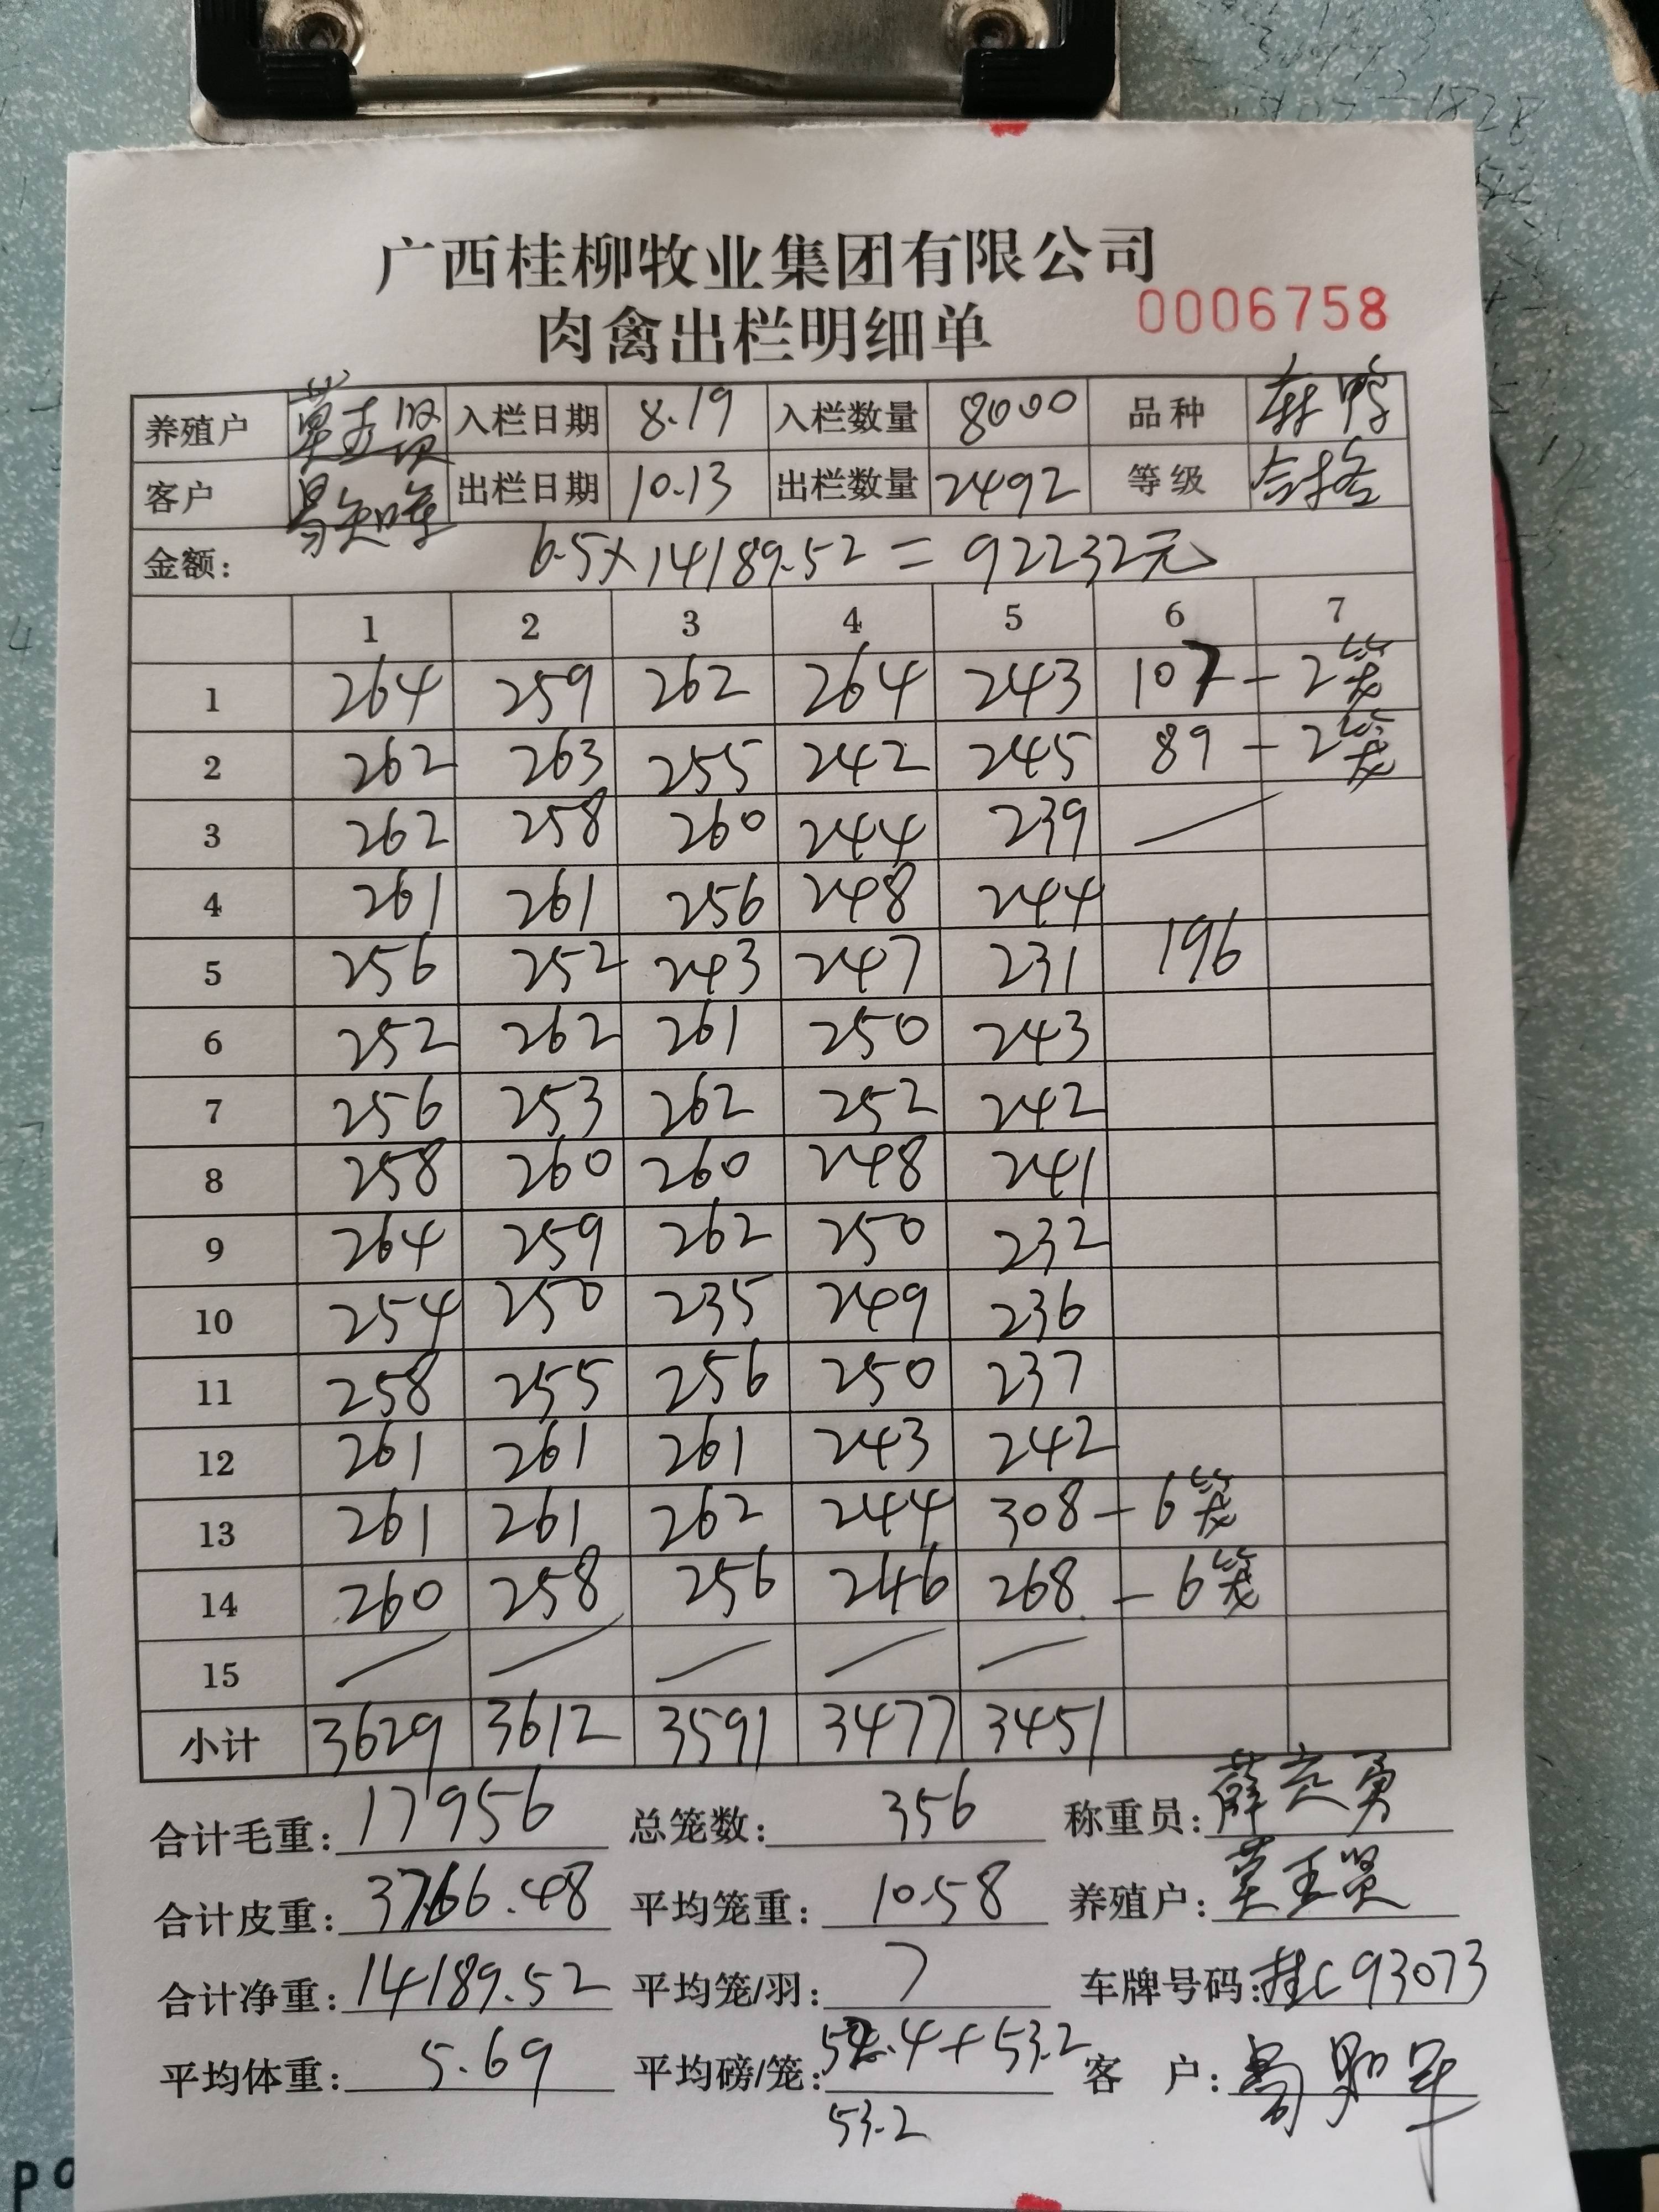 广西桂柳牧业集团有限公司
肉禽出栏明细单 0006758
养殖户 入栏日期 8.19 入栏数量 8000 品种
客户 出栏日期 10.13 出栏数量 2492 等级 合格
金额: 6.5×14189.52=92232元
1 2 3 4 5 6 7
1 264 259 262 264 243 107-2笼
2 262 263 255 242 245 89-2笼
3 262 258 260 244 239
4 261 261 256 248 244
5 256 252 243 247 231 196
6 252 262 261 250 243
7 256 253 262 252 242
8 258 260 260 248 241
9 264 259 262 250 232
10 254 250 235 249 236
11 258 255 256 250 237
12 261 261 261 243 242
13 261 261 262 244 308-6笼
14 260 258 256 246 268-6笼
15
小计 3629 3612 3591 3477 3451
合计毛重: 17956 总笼数: 356 称重员:
合计皮重: 3766.48 平均笼重: 10.58 养殖户:
合计净重: 14189.52 平均笼/羽: 7 车牌号码: 桂C93073
平均体重: 5.69 平均磅/笼: 52.4+53.2 客 户:
53.2